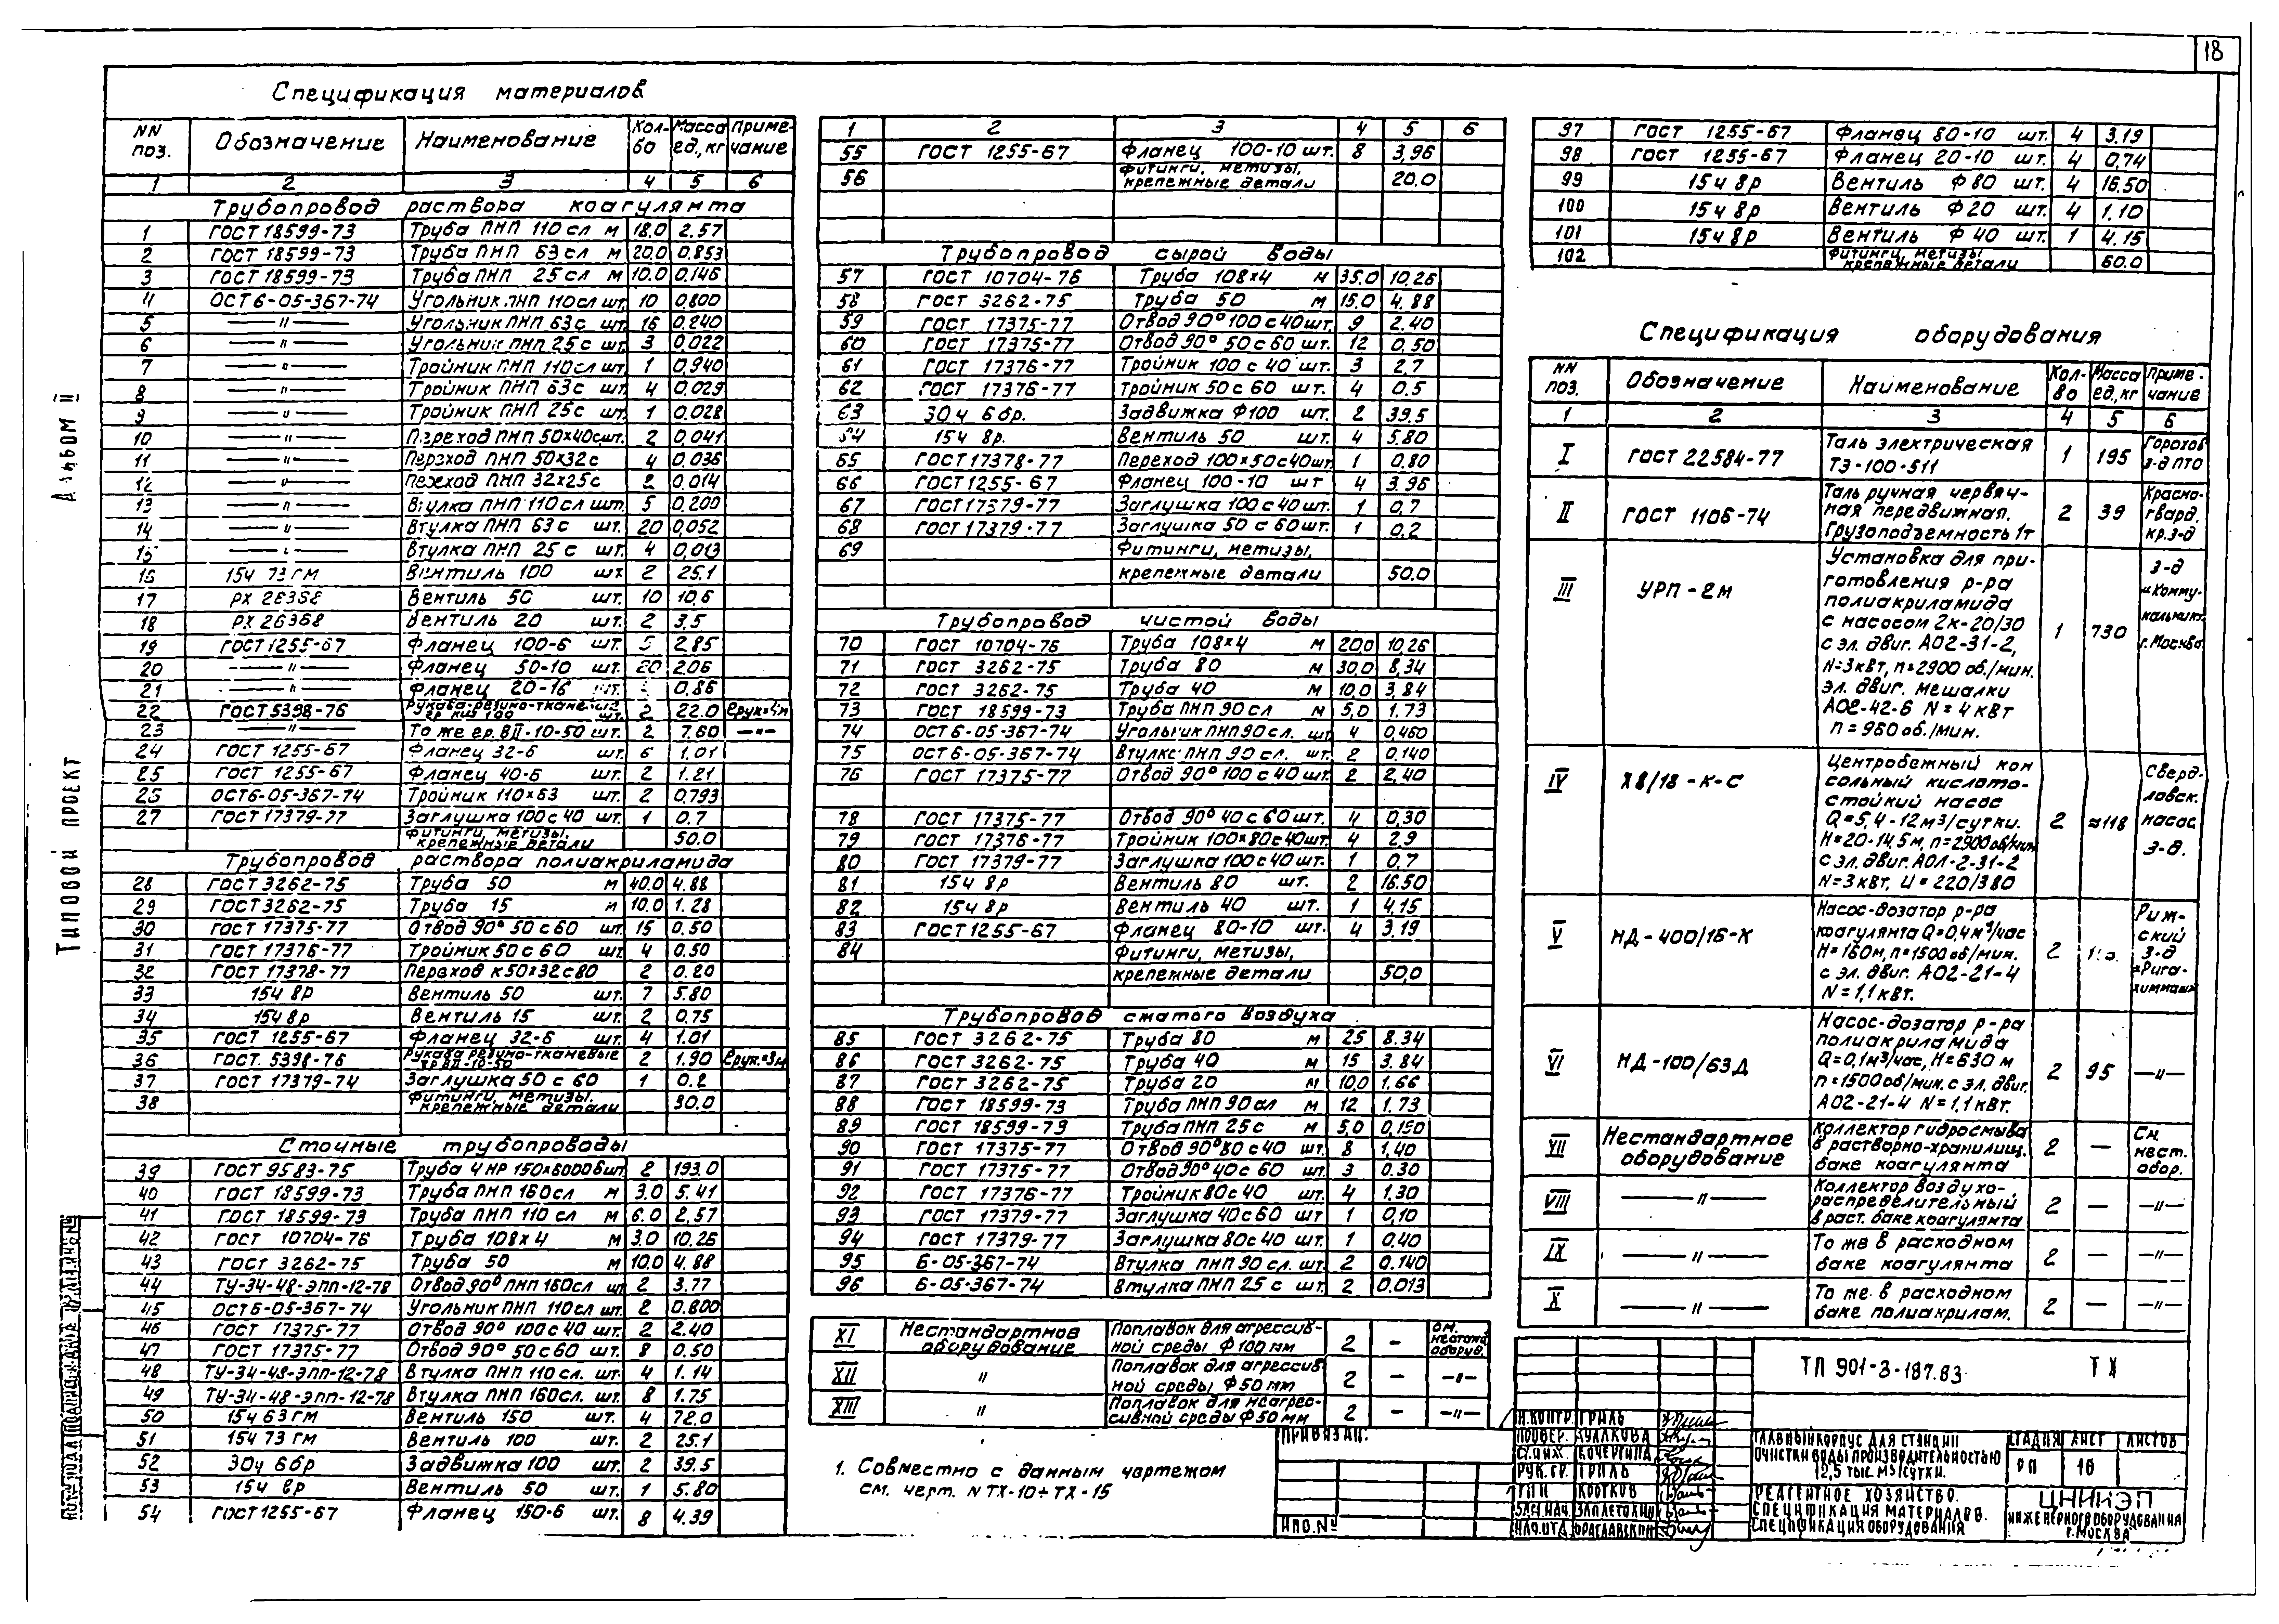 18
Спецификация материалов
NN поз. Обозначение Наименование Кол-во Масса ед,кг Примечание
1 2 3 4 5 6
Трубопровод раствора коагулянта
1 ГОСТ 18599-73 Труба ПНП 110 сл м 18.0 2.57
2 ГОСТ 18599-73 Труба ПНП 63 сл м 20,0 0.853
3 ГОСТ 18599-73 Труба ПНП 25 сл м 10.0 0.146
4 ОСТ 6-05-367-74 Угольник ПНП 110 сл шт. 10 0.800
5 —"— Угольник ПНП 63 с шт. 16 0.240
6 —"— Угольник ПНП 25 с шт. 3 0.022
7 —"— Тройник ПНП 110 сл шт. 1 0,940
8 —"— Тройник ПНП 63 с шт. 4 0.029
9 —"— Тройник ПНП 25 с шт. 1 0.028
10 —"— Переход ПНП 50х40с шт. 2 0.041
11 —"— Переход ПНП 50х32с 4 0.036
12 —"— Переход ПНП 32х25с 2 0.014
13 —"— Втулка ПНП 110 сл шт. 5 0.200
14 —"— Втулка ПНП 63 с шт. 20 0,052
15 —"— Втулка ПНП 25 с шт. 4 0,013
16 15ч 73 гм Вентиль 100 шт 2 25.1
17 РХ 26368 Вентиль 50 шт. 10 10,6
18 РХ 26368 Вентиль 20 шт. 2 3,5
19 ГОСТ 1255-67 Фланец 100-6 шт. 5 2.85
20 —"— Фланец 50-10 шт. 20 2.06
21 —"— Фланец 20-16 шт. 0.86
22 ГОСТ 5398-76 Рукава резино-тканевые шт. 2 22.0
23 —"— То же гр. ВII-10-50 шт. 2 7.60 —"—
24 ГОСТ 1255-67 Фланец 32-6 шт. 6 1.01
25 ГОСТ 1255-67 Фланец 40-6 шт. 2 1.21
26 ОСТ6-05-367-74 Тройник 110х63 шт. 2 0.793
27 ГОСТ 17379-77 Заглушка 100 с 40 шт. 1 0.7
Фитинги, метизы,
крепежные детали 50.0
Трубопровод раствора полиакриламида
28 ГОСТ 3262-75 Труба 50 м 40.0 4.88
29 ГОСТ 3262-75 Труба 15 м 10.0 1.28
30 ГОСТ 17375-77 Отвод 90° 50 с 60 шт. 15 0.50
31 ГОСТ 17376-77 Тройник 50 с 60 шт. 4 0.50
32 ГОСТ 17378-77 Переход К 50х32с80 2 0.20
33 15ч 8р Вентиль 50 шт. 7 5.80
34 15ч 8р Вентиль 15 шт. 2 0.75
35 ГОСТ 1255-67 Фланец 32-6 шт. 4 1.01
36 ГОСТ. 5398-76 Рукава резино-тканевые гр ВII-10-50 2 1.90 ℓрук.=3м
37 ГОСТ 17379-74 Заглушка 50 с 60 1 0.2
38 Фитинги, метизы,
крепежные детали 30.0
Сточные трубопроводы
39 ГОСТ 9583-75 Труба ЧНР 150х6000 В шт. 2 193.0
40 ГОСТ 18599-73 Труба ПНП 160 сл м 3.0 5.41
41 ГОСТ 18599-73 Труба ПНП 110 сл м 6.0 2,57
42 ГОСТ 10704-76 Труба 108х4 м 3.0 10.26
43 ГОСТ 3262-75 Труба 50 м 10.0 4.88
44 ТУ-34-48-ЭПП-12-78 Отвод 90° ПНП 160сл шт 2 3.77
45 ОСТ6-05-367-74 Угольник ПНП 110 сл шт. 2 0.800
46 ГОСТ 17375-77 Отвод 90° 100 с 40 шт. 2 2.40
47 ГОСТ 17375-77 Отвод 90° 50 с 60 шт. 8 0.50
48 ТУ-34-48-ЭПП-12-78 Втулка ПНП 110 сл. шт. 4 1.14
49 ТУ-34-48-ЭПП-12-78 Втулка ПНП 160сл. шт. 8 1.75
50 15ч 63 гм Вентиль 150 шт. 4 72.0
51 15ч 73 гм Вентиль 100 шт. 2 25.1
52 30ч 6бр Задвижка 100 шт. 2 39.5
53 15ч 8р Вентиль 50 шт. 1 5.80
54 ГОСТ 1255-67 Фланец 150-6 шт. 8 4.39
1 2 3 4 5 6
55 ГОСТ 1255-67 Фланец 100-10 шт. 8 3,96
56 Фитинги, метизы,
крепежные детали 20.0
Трубопровод сырой воды
57 ГОСТ 10704-76 Труба 108х4 м 35.0 10.26
58 ГОСТ 3262-75 Труба 50 м 15.0 4.88
59 ГОСТ 17375-77 Отвод 90° 100 с 40 шт. 9 2.40
60 ГОСТ 17375-77 Отвод 90° 50 с 60 шт. 12 0,50
61 ГОСТ 17376-77 Тройник 100 с 40 шт. 3 2.7
62 ГОСТ 17376-77 Тройник 50 с 60 шт. 4 0.5
63 30ч 6бр. Задвижка Ф100 шт. 2 39.5
64 15ч 8р. Вентиль 50 шт. 4 5.80
65 ГОСТ 17378-77 Переход 100х50 с 40 шт. 1 0.80
66 ГОСТ 1255-67 Фланец 100-10 шт 4 3.96
67 ГОСТ 17379-77 Заглушка 100 с 40 шт. 1 0,7
68 ГОСТ 17379-77 Заглушка 50 с 60 шт. 1 0,2
69 Фитинги, метизы,
крепежные детали 50.0
Трубопровод чистой воды
70 ГОСТ 10704-76 Труба 108х4 м 20.0 10.26
71 ГОСТ 3262-75 Труба 80 м 30,0 8,34
72 ГОСТ 3262-75 Труба 40 м 10,0 3,84
73 ГОСТ 18599-73 Труба ПНП 90 сл м 5,0 1.73
74 ОСТ 6-05-367-74 Угольник ПНП 90 сл. шт 4 0,460
75 ОСТ 6-05-367-74 Втулка ПНП 90 сл. шт. 2 0.140
76 ГОСТ 17375-77 Отвод 90° 100 с 40 шт. 2 2,40
78 ГОСТ 17375-77 Отвод 90° 40 с 60 шт. 4 0,30
79 ГОСТ 17376-77 Тройник 100х80с40 шт. 4 2,9
80 ГОСТ 17379-77 Заглушка 100 с 40 шт. 1 0,7
81 15ч 8р Вентиль 80 шт. 2 16.50
82 15ч 8р Вентиль 40 шт. 1 4,15
83 ГОСТ 1255-67 Фланец 80-10 шт. 4 3,19
84 Фитинги, метизы,
крепежные детали 50,0
Трубопровод сжатого воздуха
85 ГОСТ 3262-75 Труба 80 м 25 8.34
86 ГОСТ 3262-75 Труба 40 м 15 3.84
87 ГОСТ 3262-75 Труба 20 м 10,0 1,66
88 ГОСТ 18599-73 Труба ПНП 90 сл м 12 1.73
89 ГОСТ 18599-73 Труба ПНП 25 с м 5,0 0,150
90 ГОСТ 17375-77 Отвод 90° 80 с 40 шт. 8 1,40
91 ГОСТ 17375-77 Отвод 90° 40 с 60 шт. 3 0.30
92 ГОСТ 17376-77 Тройник 80 с 40 шт. 4 1.30
93 ГОСТ 17379-77 Заглушка 40 с 60 шт 1 0,10
94 ГОСТ 17379-77 Заглушка 80 с 40 шт. 1 0.40
95 6-05-367-74 Втулка ПНП 90 сл. шт. 2 0.140
96 6-05-367-74 Втулка ПНП 25 с шт. 2 0.013
XI Нестандартное оборудование Поплавок для агрессив-
ной среды Ф 100 мм 2 — см. нестанд. оборуд.
XII " Поплавок для агрессив
ной среды Ф 50 мм 2 — —"—
XIII " Поплавок для неагрес-
сивной среды Ф 50 мм 2 — —"—
1. Совместно с данным чертежом
см. черт. N ТХ-10÷ТХ-15
97 ГОСТ 1255-67 Фланец 80-10 шт. 4 3,19
98 ГОСТ 1255-67 Фланец 20-10 шт. 4 0,74
99 15ч 8р Вентиль Ф 80 шт. 4 16.50
100 15ч 8р Вентиль Ф 20 шт. 4 1.10
101 15ч 8р Вентиль Ф 40 шт. 1 4.15
102 Фитинги, метизы
крепежные детали 60.0
Спецификация оборудования
NN поз. Обозначение Наименование Кол-во Масса ед,кг Примечание
1 2 3 4 5 6
I ГОСТ 22584-77 Таль электрическая
ТЭ-100-511 1 195 Горохов з-д ПТО
II ГОСТ 1106-74 Таль ручная червяч-
ная передвижная.
Грузоподъемность 1т 2 39 Красно-гвард. кр.з-д
III УРП-2м Установка для при-
готовления р-ра
полиакриламида
с насосом 2к-20/30
с эл. двиг. АО2-31-2,
N=3кВт, n=2900 об./мин.
эл. двиг. мешалки
АО2-42-6 N=4 кВт
n=960 об./мин. 1 730 з-д г. Москва
IV Х8/18-К-С Центробежный кон
сольный кислото-
стойкий насос
Q=5,4-12м³/сутки.
H=20-14,5м, n=2900 об/мин
с эл. двиг. АОЛ-2-31-2
N=3кВт, U=220/380 2 ≈118 Сверд-ловск. насос з-д.
V НД-400/16-К Насос-дозатор р-ра
коагулянта Q=0,4м³/час
H=160м, n=1500 об/мин.
с эл. двиг. АО2-21-4
N=1,1кВт. 2 Риж-ский з-д "Рига-химмаш"
VI НД-100/63Д Насос-дозатор р-ра
полиакриламида
Q=0,1м³/час, H=630 м
n=1500об/мин. с эл. двиг.
АО2-21-4 N=1,1 кВт. 2 95 —"—
VII Нестандартное оборудование Коллектор гидросмыва
в растворно-хранилищ.
баке коагулянта 2 — См. нест. обор.
VIII —"— Коллектор воздухо-
распределительный
в раст. баке коагулянта 2 — —"—
IX —"— То же в расходном
баке коагулянта 2 — —"—
X —"— То же в расходном
баке полиакрилам. 2 — —"—
ТП 901-3-187.83 ТХ
ПРИВЯЗАН:
ИНВ.№
Н.КОНТР. ГРИЛЬ
ПРОВЕР. КУЛАКОВА
СТ.ИНЖ. КОЧЕРГИНА
РУК.ГР. ГРИЛЬ
ГИП КОРТКОВ
НАЧ.ОТД.
ГЛАВНЫЙ КОРПУС ДЛЯ СТАНЦИИ
ОЧИСТКИ ВОДЫ ПРОИЗВОДИТЕЛЬНОСТЬЮ
12,5 ТЫС. М3/СУТКИ.
СТАДИЯ ЛИСТ ЛИСТОВ
РП 16
РЕАГЕНТНОЕ ХОЗЯЙСТВО.
СПЕЦИФИКАЦИЯ МАТЕРИАЛОВ.
СПЕЦИФИКАЦИЯ ОБОРУДОВАНИЯ
ЦНИИЭП
ИНЖЕНЕРНОГО ОБОРУДОВАНИЯ
Г.МОСКВА
Альбом II
Типовой проект